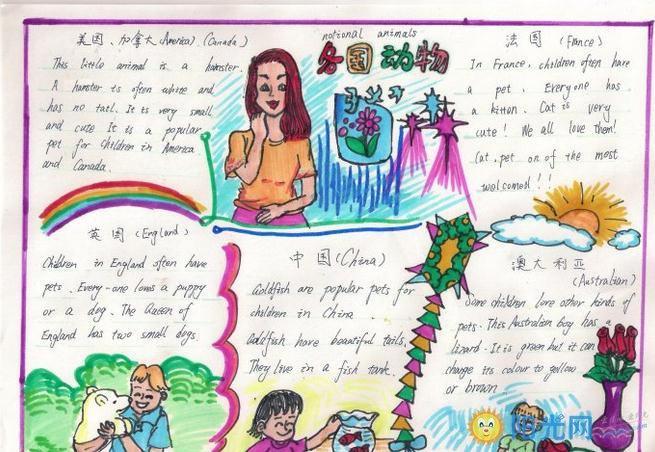 notional animals
各国动物
美国、加拿大(America).(Canada)
This little animal is a hamster.
A hamster is often white and
has no tail. It is very small
and cute It is a popular
pet for children in America
and Canada.
法国 (France)
In France, children often have
a pet. Everyone has
a kitten. Cat is very
cute! We all love them!
Cat pet on of the most
welcomed!!
英国 (England)
Children in England often have
pets. Every-one loves a puppy
or a dog. The Queen of
England has two small dogs.
中国(China)
Goldfish are popular pets for
children in China
Goldfish have beautiful tails.
They live in a fish tank.
澳大利亚
(Australian)
Some children love other kinds of
pets. This Australian boy has a
lizard. It is green but it can
change its colour to yellow
or brown
阳光网